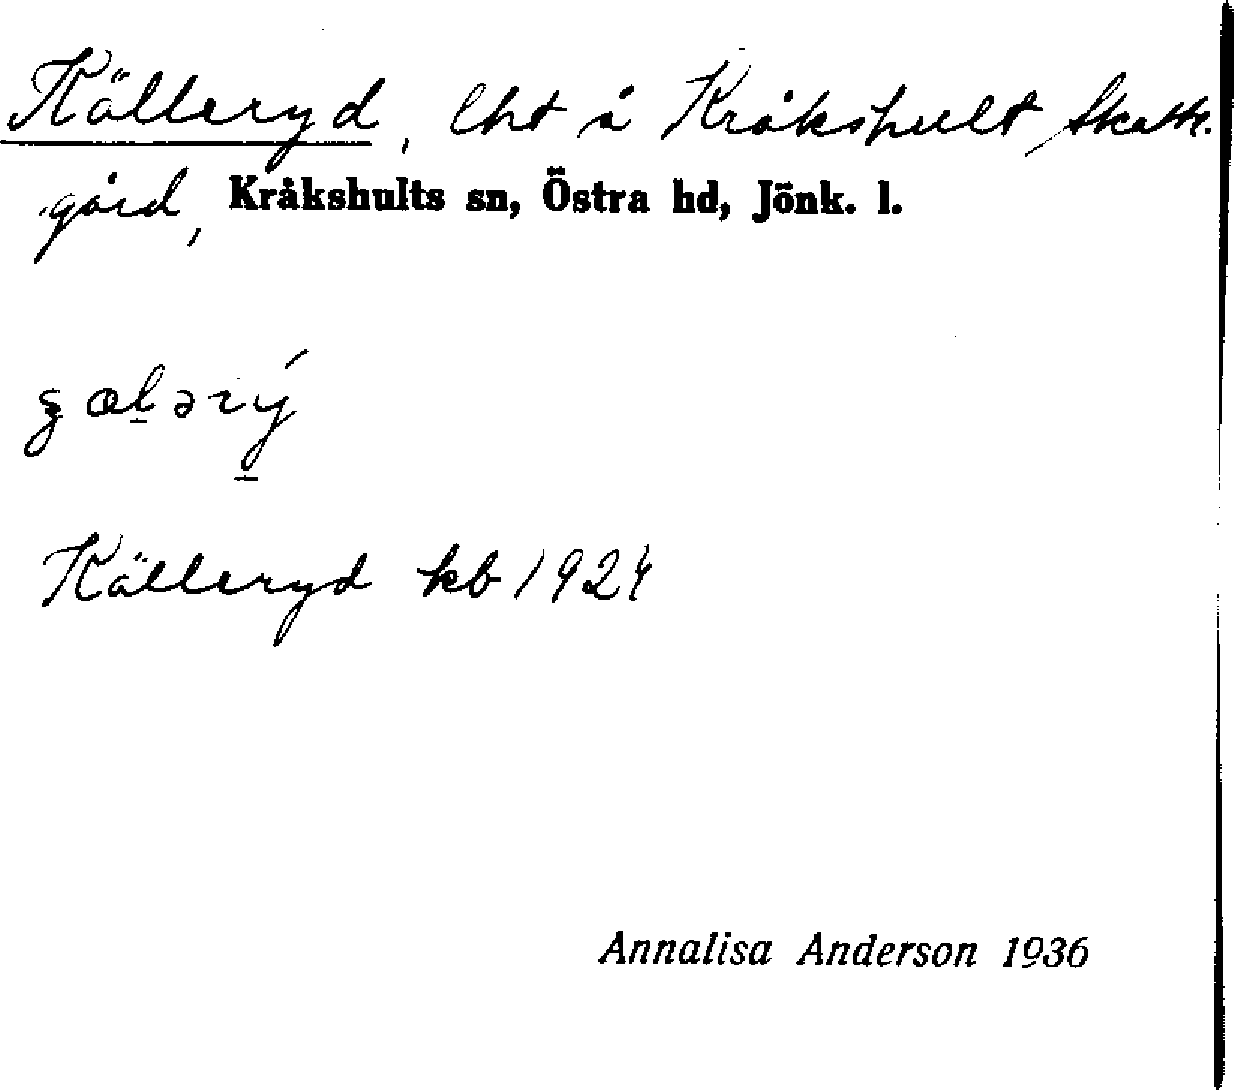 Källeryd, lht å Kråkshult Skatte-
gård, Kråkshults sn, Östra hd, Jönk. l.
Källeryd kb 1924
Annalisa Anderson 1936